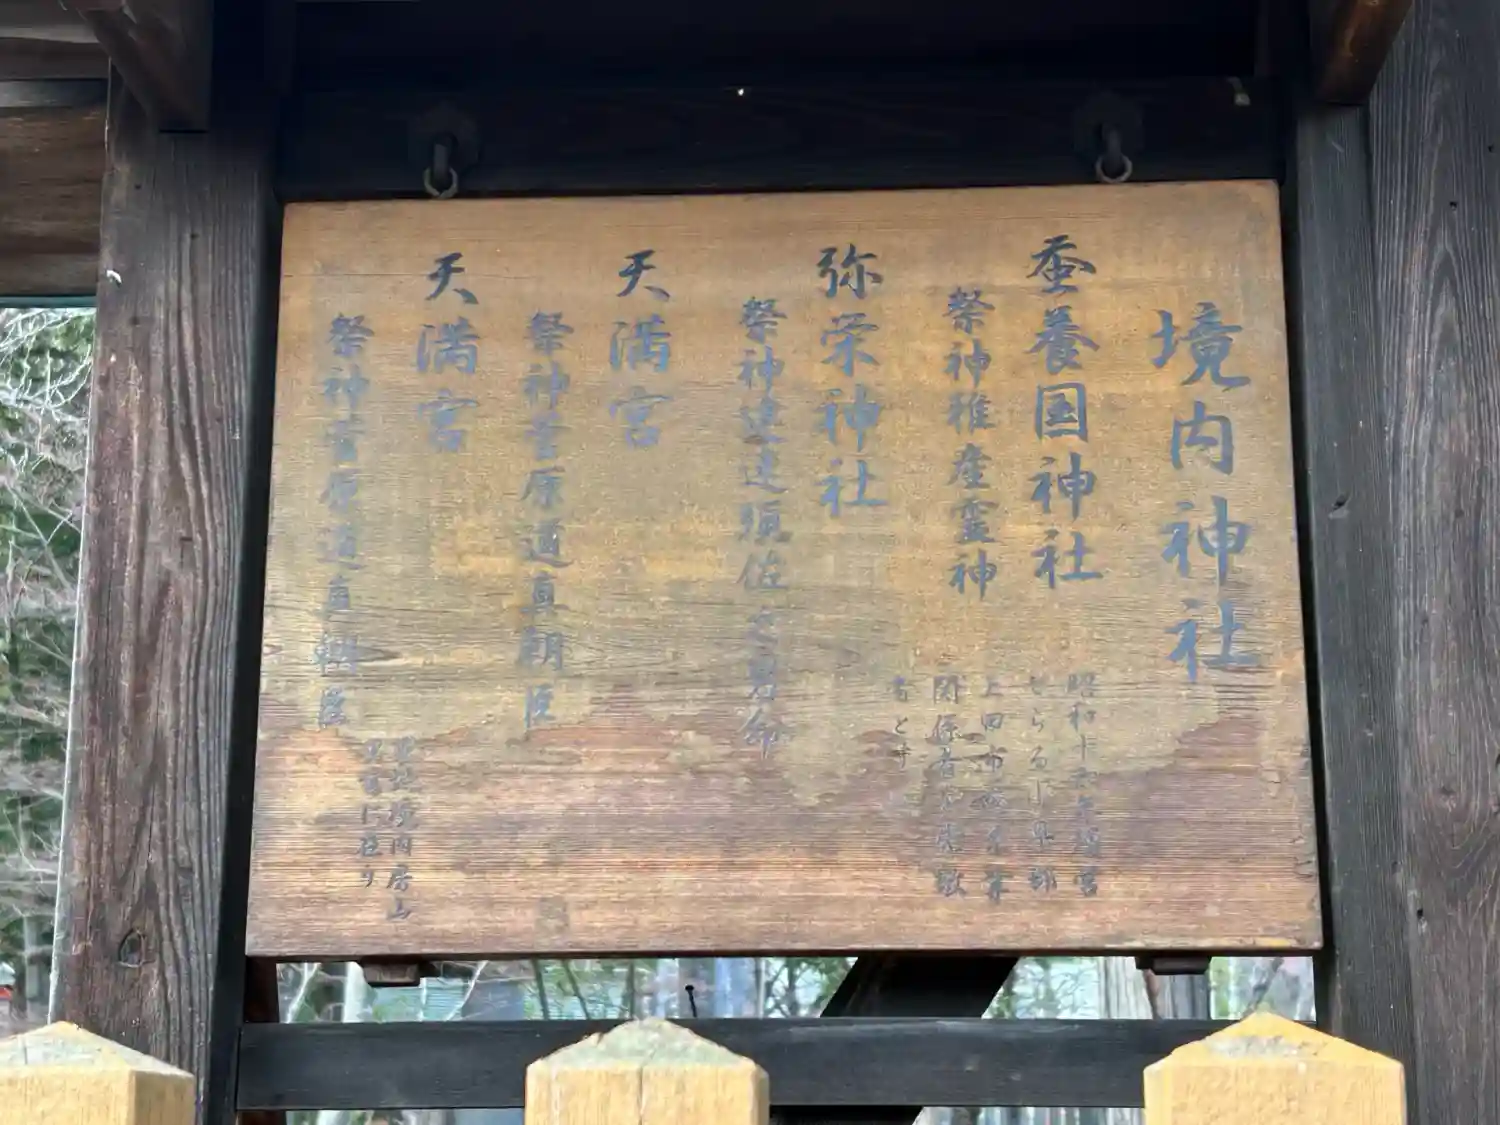 境内神社
蚕養国神社
祭神稚産霊神
昭和十六年造営
せらる小県郡
上田市蚕糸業
関係者の崇敬
者と
弥栄神社
祭神建速須佐之男命
天満宮
祭神菅原道真朝臣
天満宮
祭神菅原道真朝臣
境内
に在り